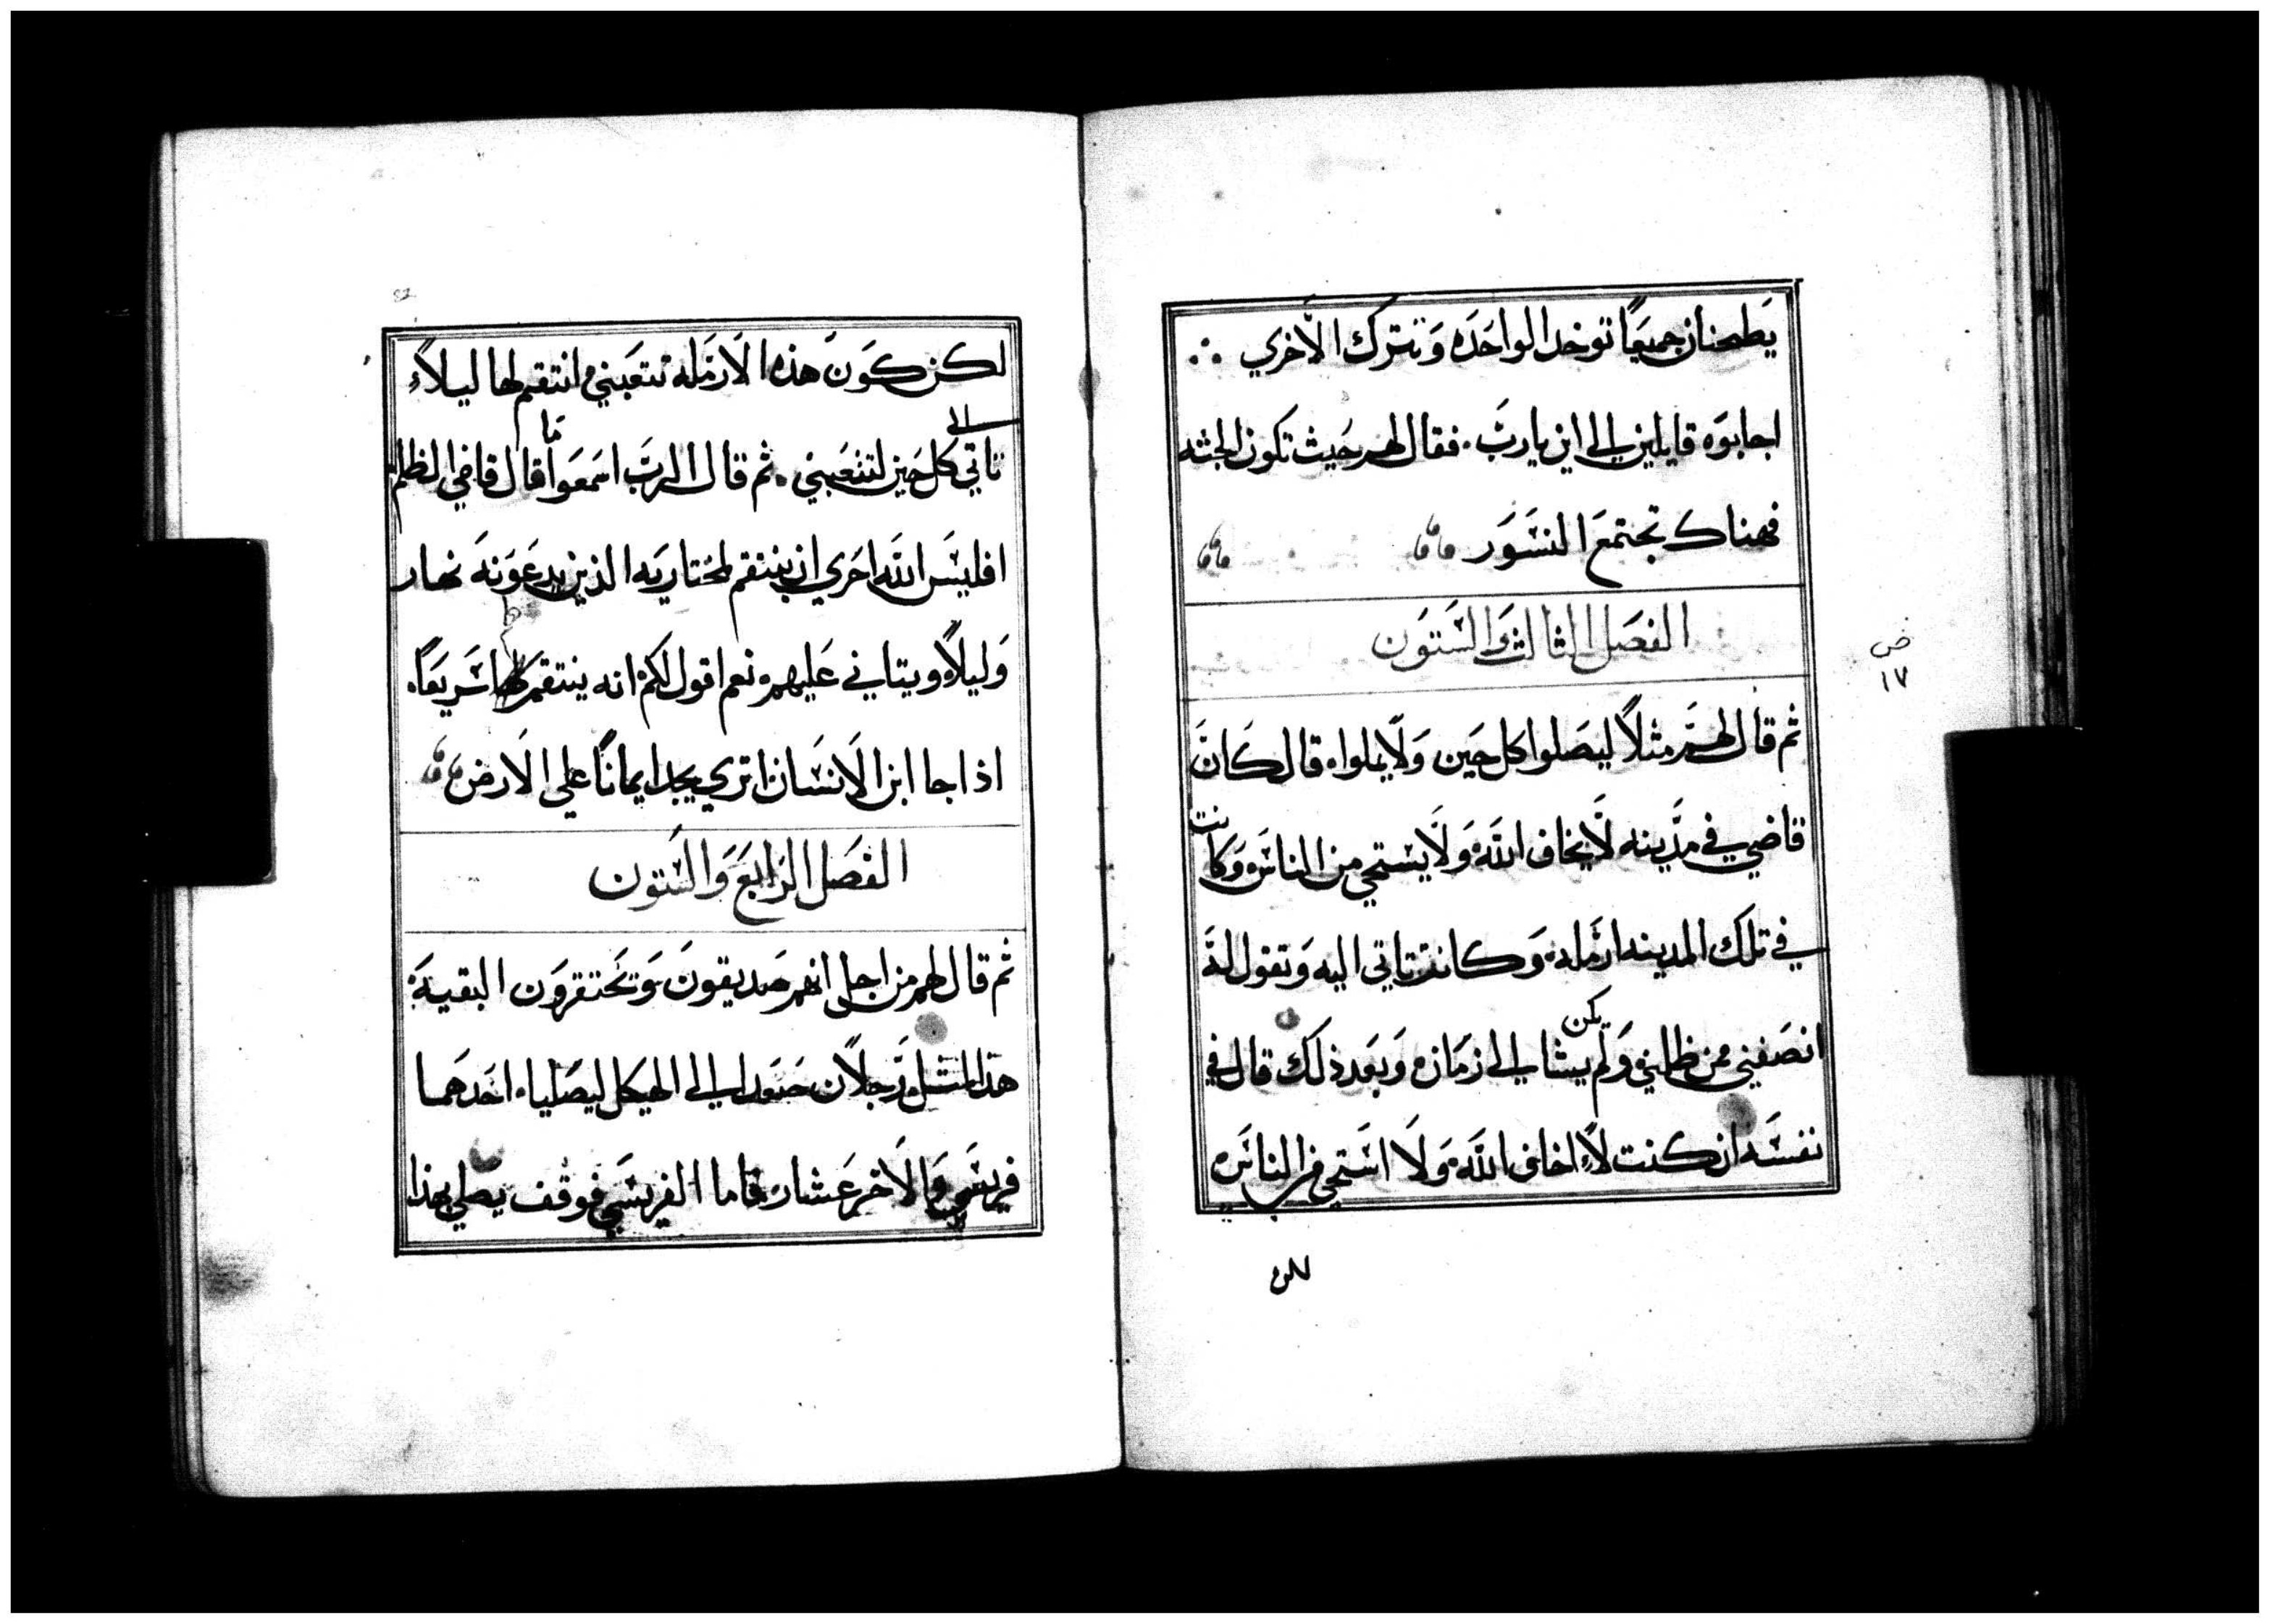 يَطحنان جميعًا توخد الواحَده وَتترك الاخري ∴
اجابوَه قايلين الي اين يارب. فقال لهم حيث تكون الجثه
فهناك تجتمع النسَوَر
الفصَل الثالث والستوَن
ص
١٧
ثم قال لهم مثلاً ليصَلوا كل حَين وَلا يملوا، قال كَانَ
قاضي في مدَينه لا يخاف اللَه وَلا يستحي من الناس وَكانت
في تلك المدينه ارمَله، وَكانت تاتي اليه وَتقول لهَ
انصَفني ممن ظلمني وَلم يكن يشا الي زمَان، وَبعَد ذلك قال في
نفسَه ان كنت لا اخاف اللَه وَلا استَحي من الناسَ
لكن
لكن كوَن هذه الارمَله تتعَبني انتقم لها ليلاً
تاتي الي كل حَين لتتعَبني. ثم قال الربَ اسمَعوَا مَا قال قاضي الظلم
افليسَ اللَه احَري ان ينتقم لمختاريَه الذين يدعَوَنَه نهار
وَليلاً ويتاني عَليهم، نعم اقول لكم انه ينتقم لهم سَريعَاً،
اذا جا ابن الانسَان اتري يجد ايمانًا علي الارض
الفصَل الرَابعَ وَالستون
ثم قال لهم من اجل انهم صَديقونَ وَتحتقروَن البقيَة
هذا المثل، رَجلان صَعَدا الي الهيكل ليصَليا، احَدهَما
فريسَي وَالاخر عَشار، فاما الفريسَي فوقف يصلي بهذا